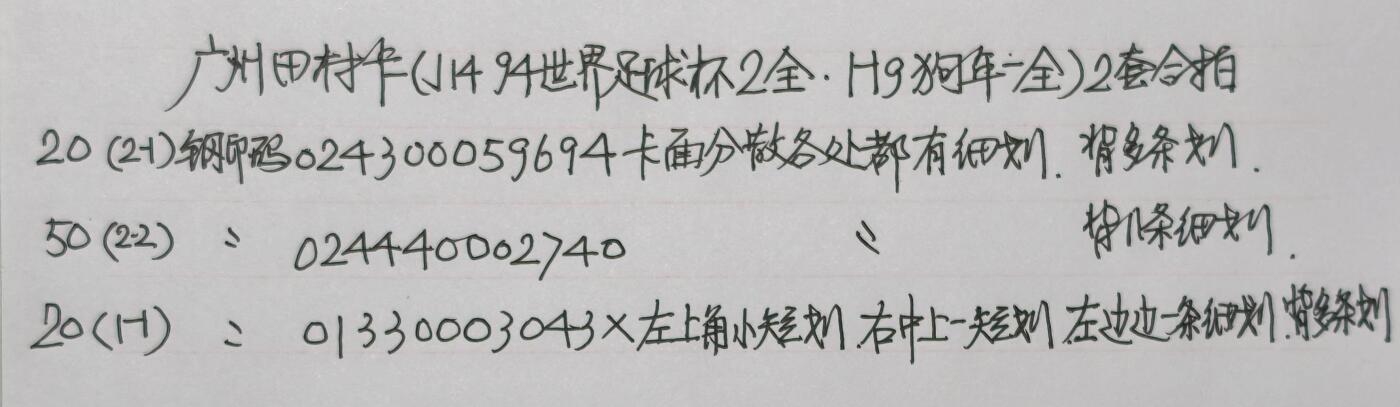 广州田村卡(J14 94世界足球杯2全·H9狗年一全)2套合拍
20(2-1)钢印码024300059694卡面分散各处都有细划.背多条划.
50(2-2) 〃 024440002740 〃 背几条细划.
20(1-1) 〃 01330003043×左上角小短划.右中上一短划.左边边一条细划.背多条划